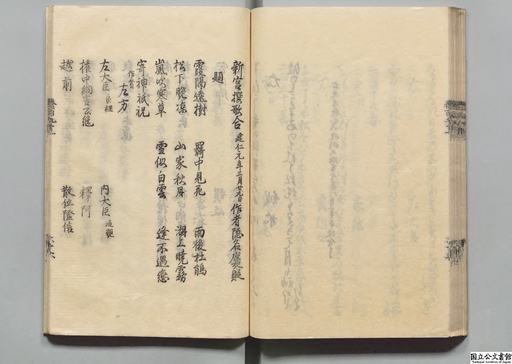 新宮撰歌合 建仁元年三月廿九日 作者隠名
題
霞隔遠樹 羇中見花 雨後杜鵑
松下晩凉 山家秋月 湖上暁霧
嵐吹寒草 雪似白雲 逢不遇恋
寄神祇祝
作者 左方
左大臣 良経 内大臣 通親
権中納言公継 釋阿
越前 散位隆信
国立公文書館
National Archives of Japan